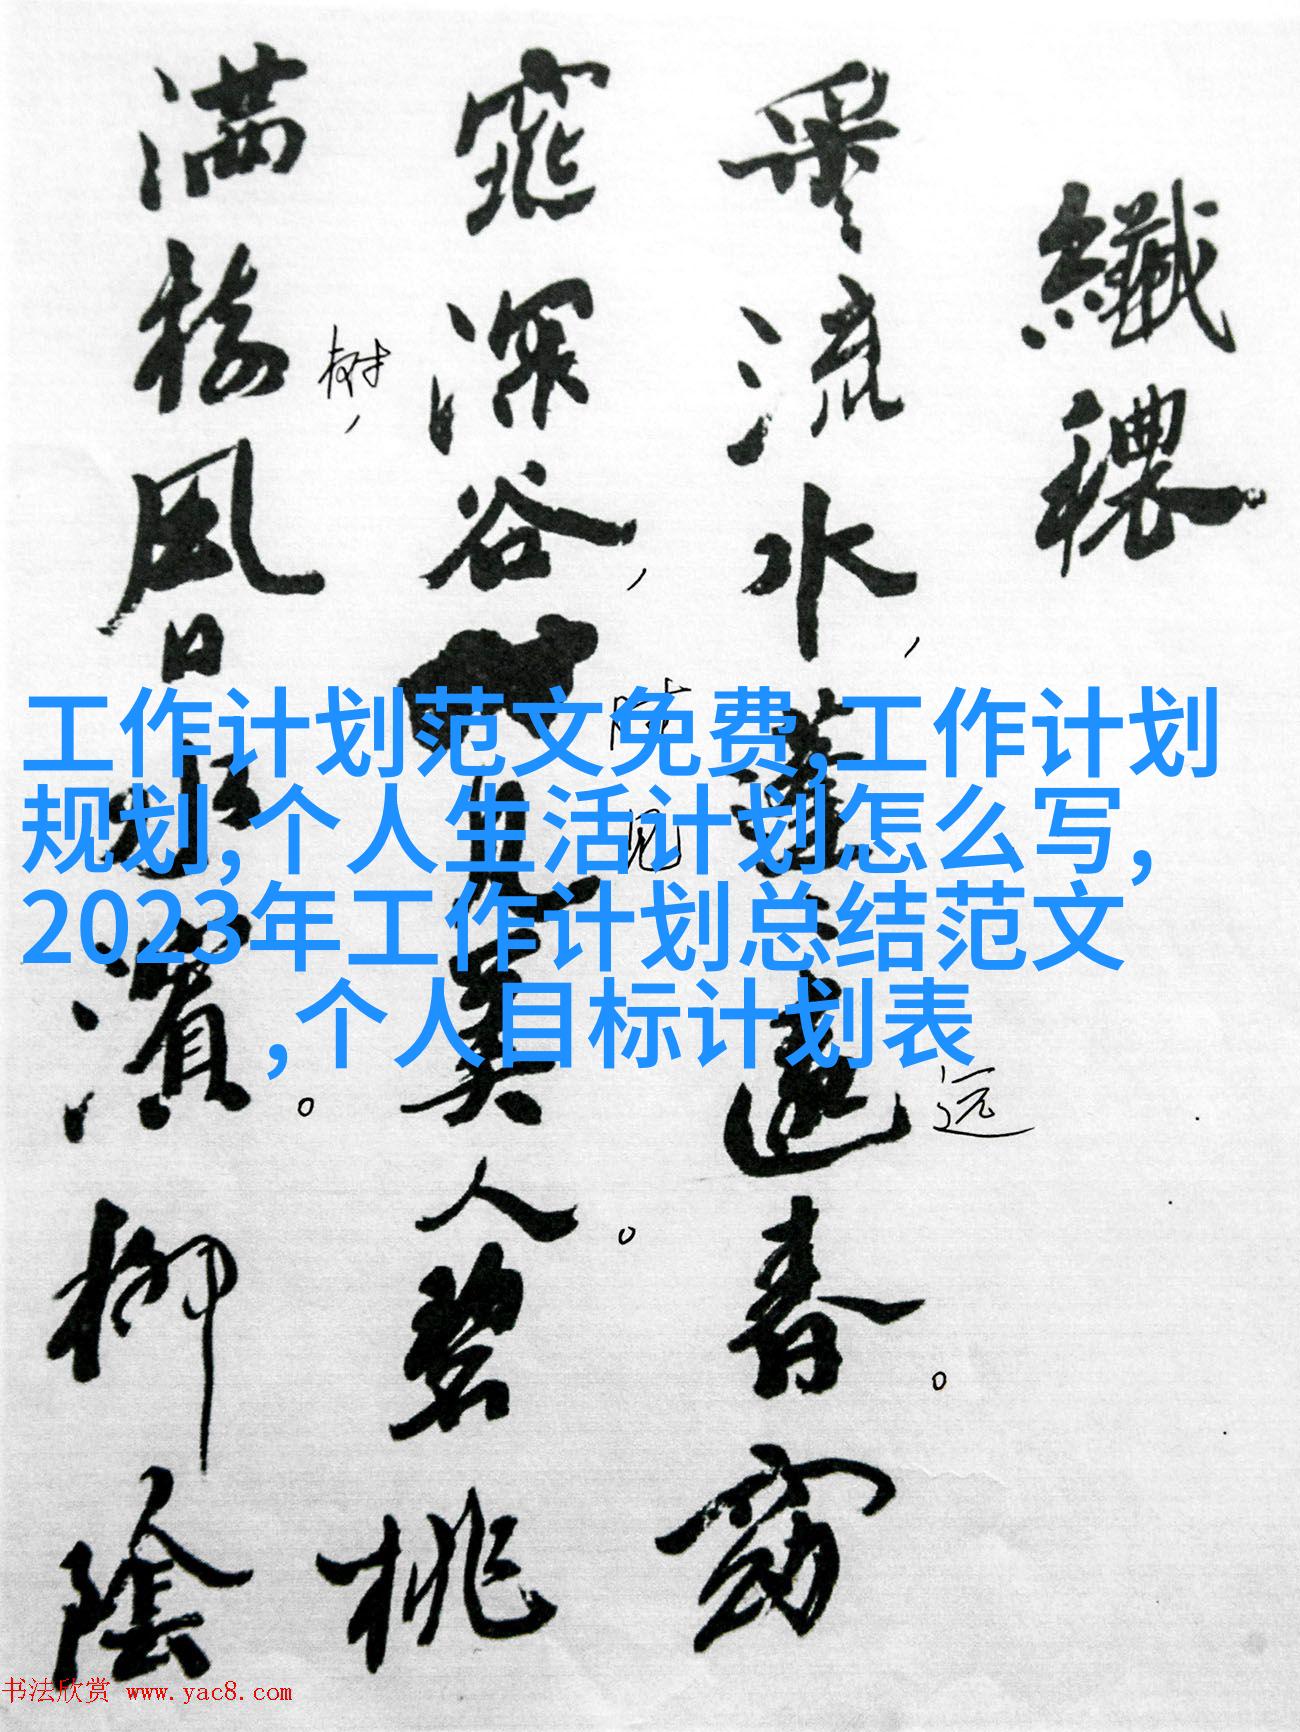 纖穠
采流水
蓬
遠春窈
窕深谷
見美人碧桃
满樹風日水濱柳陰
树,
,
,
时
见
远
。
。
。
工作计划范文免费,工作计划
规划,个人生活计划怎么写,
2023年工作计划总结范文
,个人目标计划表
书法欣赏 www.yac8.com